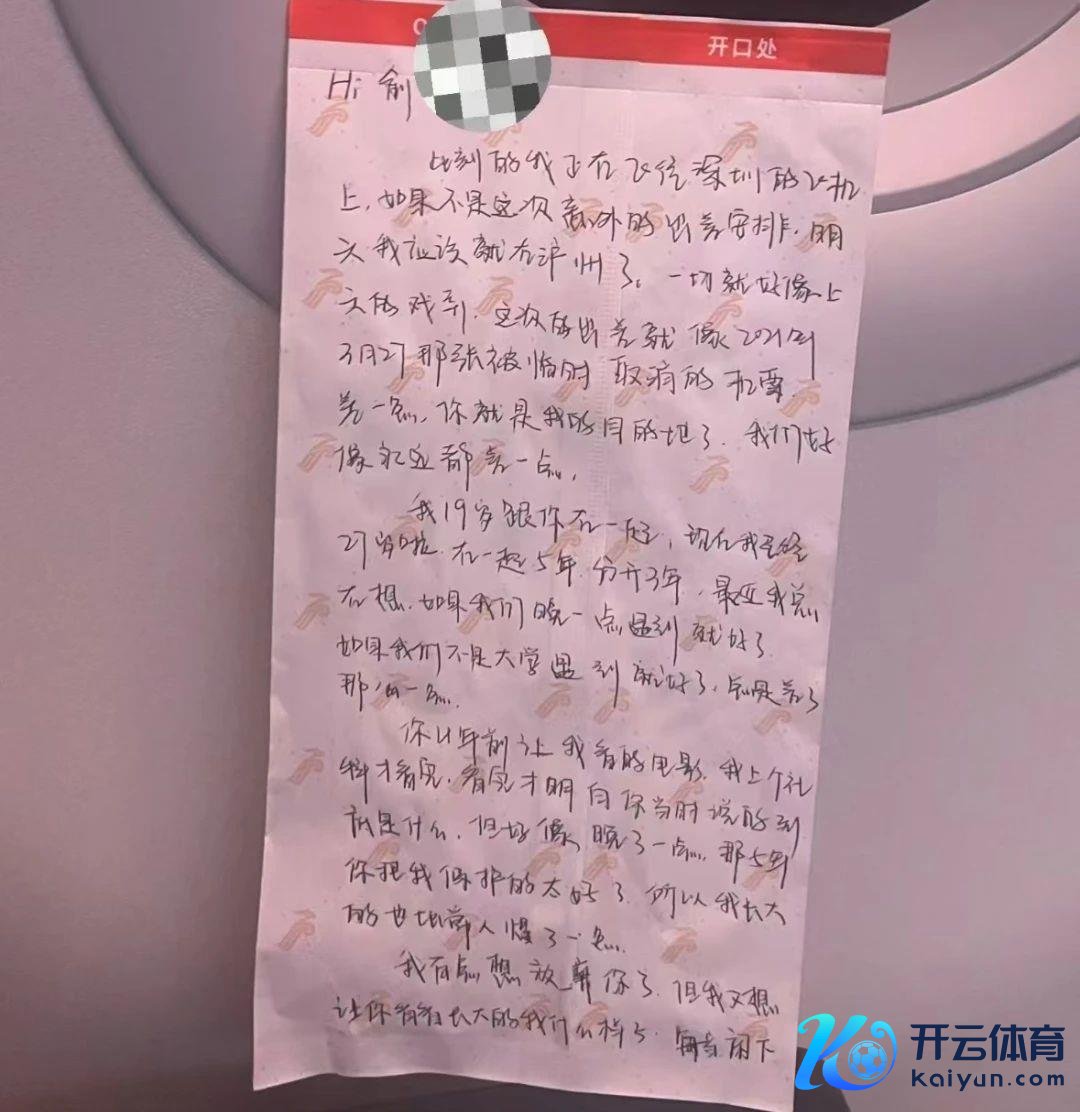 开口处
Hi 俞
此刻的我正在飞往深圳的飞机
上,如果不是这次意外的出差安排,明
天我应该就在沪州了。一切就好像上
天的戏弄,这次的出差就像2021年
3月27那张被临时取消的机票,
差一点,你就是我的目的地了,我们好
像永远都差一点,
我19岁跟你在一起,现在我已经
27岁啦,在一起5年,分开3年,最近我总
在想,如果我们晚一点遇到就好了,
如果我们不是大学遇到就好了,总是差了
那么一点,
你几年前让我看的电影,我上个礼
拜才看完,看完才明白你当时说的到
底是什么,但好像晚了一点,那5年
你把我保护的太好了,所以我长大
的也比常人慢了一点,
我有点想放弃你了,但我又想
让你看看长大的我什么样了,每当闲下
开云体育
kaiyun.com